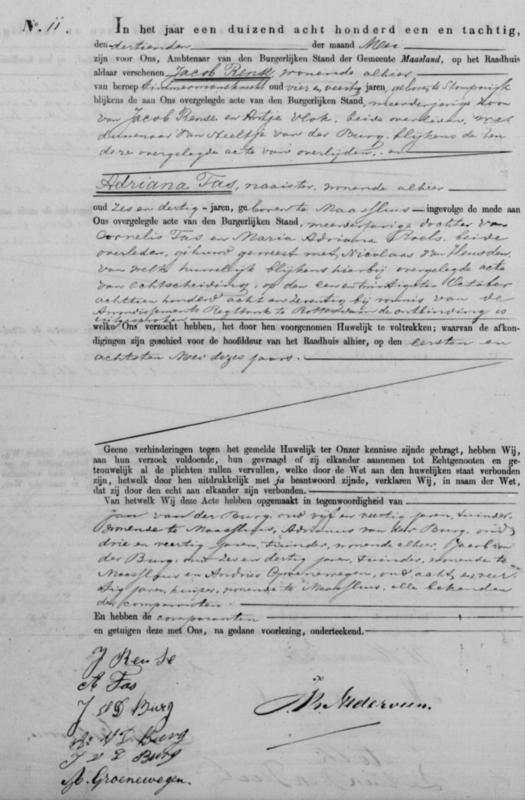 No. 11.
In het jaar een duizend acht honderd een en tachtig,
den dertienden der maand Mei
zijn voor Ons, Ambtenaar van den Burgerlijken Stand der Gemeente Maasland, op het Raadhuis
aldaar verschenen Jacob Rense, wonende alhier
van beroep timmermansknecht oud vier en veertig jaren, geboren te Stompwijk
blijkens de aan Ons overgelegde acte van den Burgerlijken Stand, meerderjarige zoon
van Jacob Rense en Antje Vlok, beide overleden, wed
uwenaar van Neeltje van der Burg, blijkens de ten
deze overgelegde acte van overlijden, en
Adriana Tas, naaister, wonende alhier
oud zes en dertig jaren, geboren te Maassluis ingevolge de mede aan
Ons overgelegde acte van den Burgerlijken Stand, meerderjarige dochter van
Cornelis Tas en Maria Adriana Roels, beide
overleden, gehuwd geweest met Nicolaas van Heusden,
van welk huwelijk blijkens hierbij overgelegde acte
van echtscheiding, op den een en twintigsten October
achttien honderd acht en zeventig bij vonnis van de
Arrondissements Regtbank te Rotterdam de ontbinding is
uitgesproken
welke Ons verzocht hebben, het door hen voorgenomen Huwelijk te voltrekken; waarvan de afkon-
digingen zijn geschied voor de hoofddeur van het Raadhuis alhier, op den eersten en
achtsten Mei dezes jaars.
Geene verhinderingen tegen het gemelde Huwelijk ter Onzer kennisse zijnde gebragt, hebben Wij,
aan hun verzoek voldoende, hun gevraagd of zij elkander aannemen tot Echtgenooten en ge-
trouwelijk al de plichten zullen vervullen, welke door de Wet aan den huwelijken staat verbonden
zijn, hetwelk door hen uitdrukkelijk met ja beantwoord zijnde, verklaren Wij, in naam der Wet,
dat zij door den echt aan elkander zijn verbonden.
Van hetwelk Wij deze Acte hebben opgemaakt in tegenwoordigheid van
Jan van der Burg, oud vijf en veertig jaren, tuinder,
wonende te Maassluis, Adrianus van der Burg, oud
drie en veertig jaren, tuinder, wonende alhier, Jacob van
der Burg, oud zes en dertig jaren, tuinder, wonende te
Maassluis en Andries Groenewegen, oud acht en veer
tig jaren, kuiper, wonende te Maassluis, alle bekenden
der comparanten.
En hebben de comparanten
en getuigen deze met Ons, na gedane voorlezing, onderteekend.
J Rense
A Tas
J v D Burg
As v D Burg
J v D Burg
A. Groenewegen.